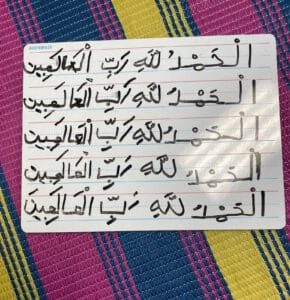 الْحَمْدُ لِلَّهِ رَبِّ الْعَالَمِين
الْحَمْدُ لِلَّهِ رَبِّ الْعَالَمِين
الْحَمْدُ لِلَّهِ رَبِّ الْعَالَمِين
الْحَمْدُ لِلَّهِ رَبِّ الْعَالَمِين
الْحَمْدُ لِلَّهِ رَبِّ الْعَالَمِينَ